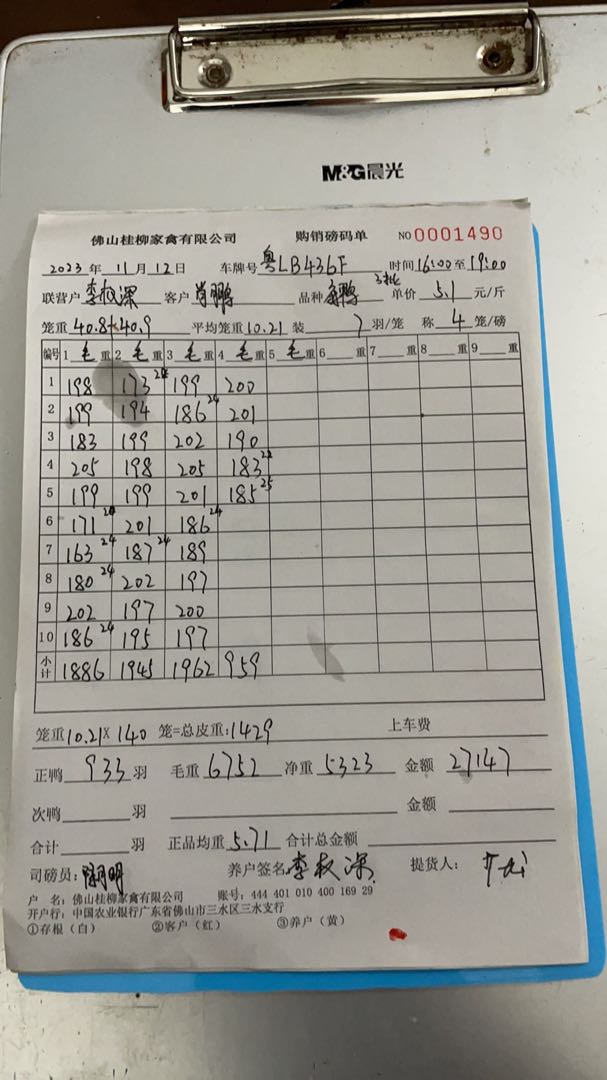 M&G晨光
佛山桂柳家禽有限公司 购销磅码单 NO 0001490
2023年 11月 12日 车牌号 粤LB436F 时间 16:00 至 19:00
联营户 李叔深 客户 肖鹏 品种 鸭 3批 单价 5.1 元/斤
笼重 40.8+40.9 平均笼重 10.21 装 7 羽/笼 称 4 笼/磅
编号 1 毛 重 2 毛 重 3 毛 重 4 毛 重 5 毛 重 6 重 7 重 8 重 9 重
1 198 173 28 199 200
2 199 194 186 24 201
3 183 199 202 190
4 205 198 205 183 24
5 199 199 201 185 25
6 171 20 201 186 24
7 163 24 187 24 189
8 180 24 202 197
9 202 197 200
10 186 24 195 197
小计 1886 1945 1962 959
笼重 10.21 X 140 笼=总皮重: 1429 上车费
正鸭 933 羽 毛重 6752 净重 5323 金额 27147
次鸭 羽 金额
合计 羽 正品均重 5.71 合计总金额
司磅员: 养户签名 李叔深 提货人:
户 名: 佛山桂柳家禽有限公司 账号: 444 401 010 400 169 29
开户行: 中国农业银行广东省佛山市三水区三水支行
①存根（白） ②客户（红） ③养户（黄）